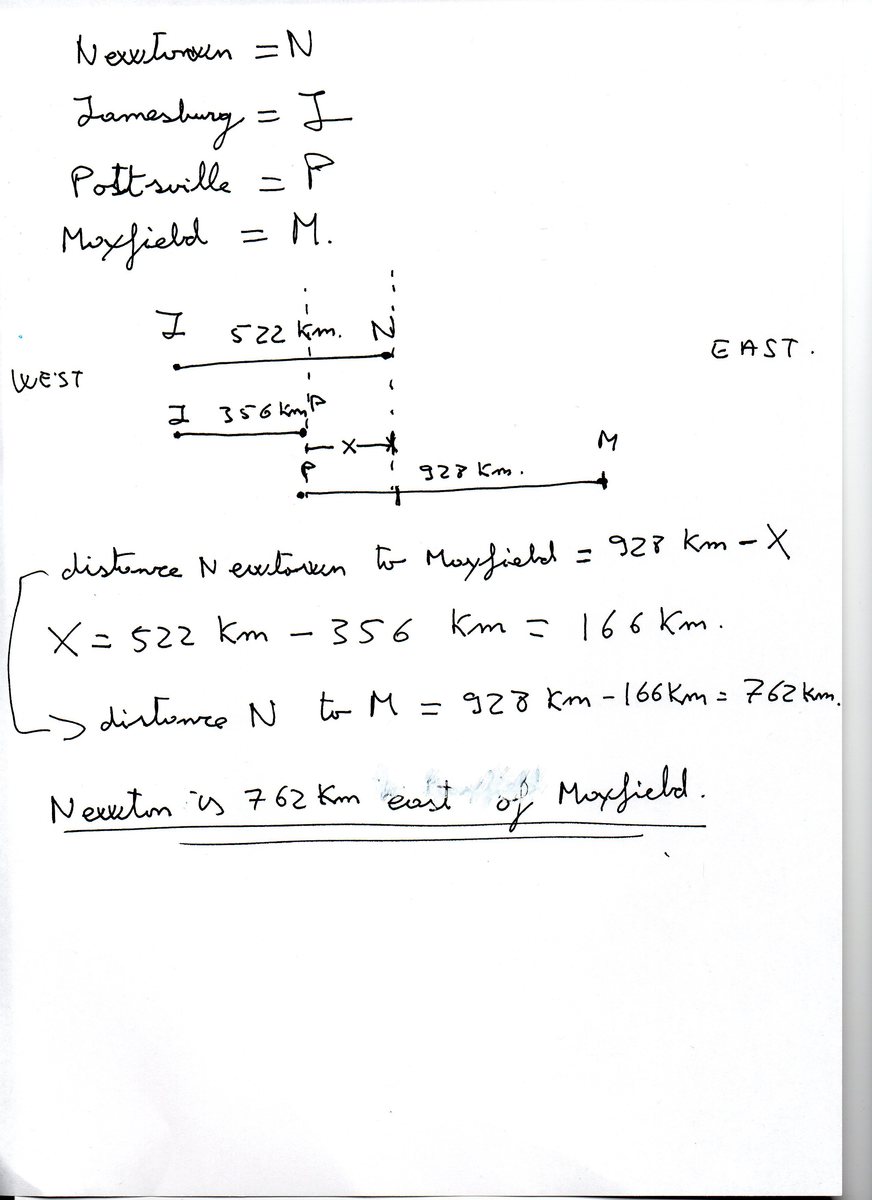 Newtown = N
Jamesburg = J
Pottsville = P
Moxfield = M.
J 522 Km. N
EAST.
WEST
J 356 Km P
X
P 928 Km. M
distance Newtown to Moxfield = 928 Km - X
X = 522 Km - 356 Km = 166 Km.
distance N to M = 928 Km - 166 Km = 762 Km.
Newton is 762 Km east of Moxfield.